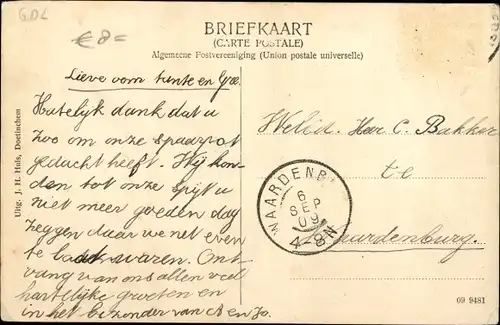 GDL
€8=
BRIEFKAART
(CARTE POSTALE)
Algemeene Postvereeniging (Union postale universelle)
Lieve oom tante en
Hartelijk dank dat u
zoo om onze spaarpot
gedacht heeft. Wij kon-
den tot onze spijt u
niet meer goeden dag
zeggen daar we net even
te laat waren. Ont-
vang van ons allen veel
hartelijke groeten en
in het bizonder van A en Jo.
Uitg. J. H. Huls, Doetinchem
Weled. Heer C. Bakker
te
Waardenburg.
WAARDENB
6
SEP
09
4-8N
09 9481